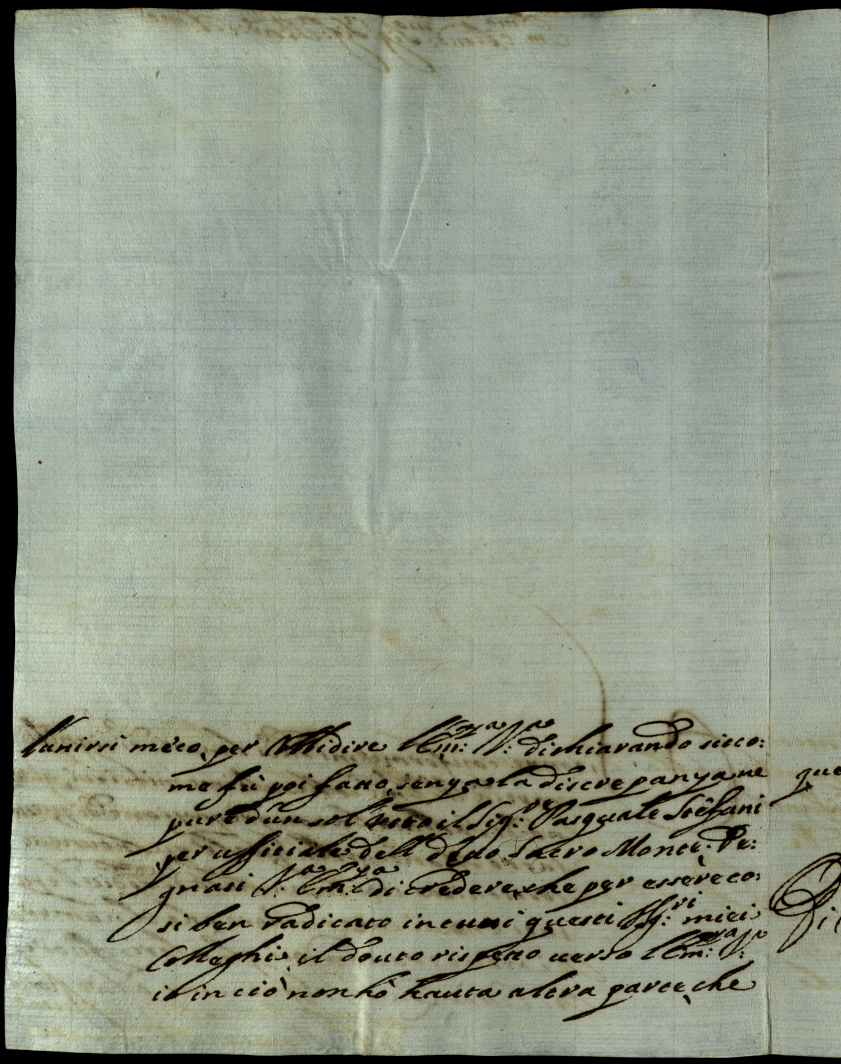 l'unirsi meco, per Vbbidire l'Em:za V:ra dichiarando sicco:
me fù poi fatto, senza la discrepanza ne
pure d'un sol voto il Sig:r Pasquale Steffani
per uffiziale dell' detto Sacro Monte. De:
gnasi V:ra Em:za di credere, che per essere co:
si ben radicato in tutti questi SSg:ri miei
Colleghi il douto rispetto uerso l'Em:za V:ra
io in ciò non hò hauta altra parte, che
que